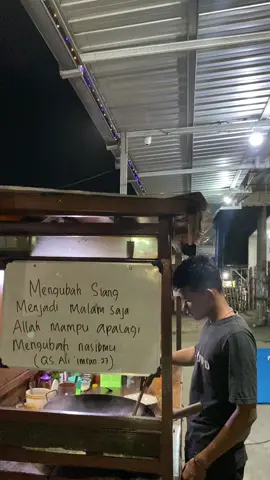 Mengubah Siang
Menjadi Malam saja
Allah mampu apalagi
Mengubah nasibmu
(QS. Ali 'imran : 27)